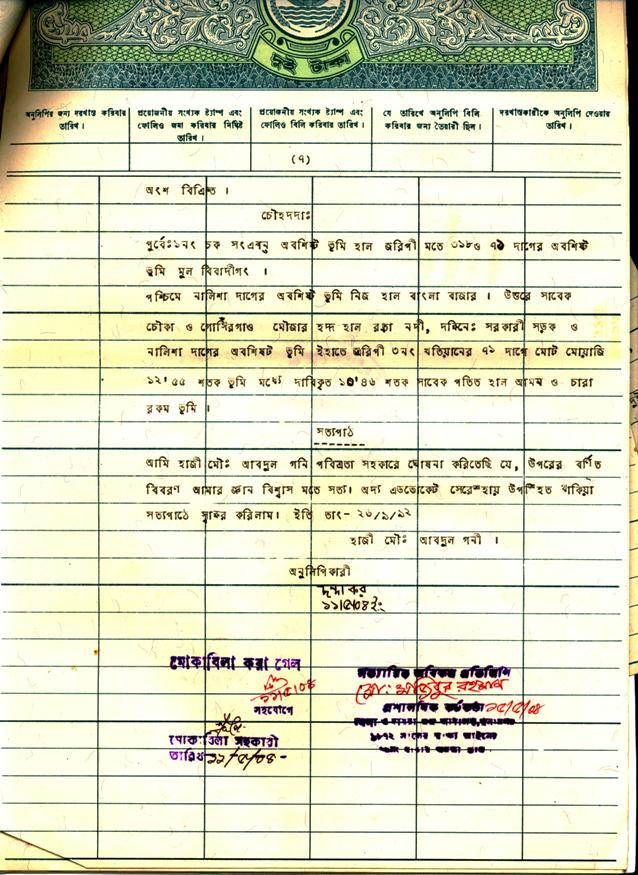 দুই টাকা
অনুলিপির জন্য দরখাস্ত করিবার তারিখ।
প্রয়োজনীয় সংখ্যক ষ্ট্যাম্প এবং ফোলিও জমা করিবার নির্দিষ্ট তারিখ।
প্রয়োজনীয় সংখ্যক ষ্ট্যাম্প এবং ফোলিও বিলি করিবার তারিখ।
যে তারিখে অনুলিপি বিলি করিবার জন্য তৈয়ারী ছিল।
দরখাস্তকারীকে অনুলিপি দেওয়ার তারিখ।
(৭)
অংশ বিক্রিত ।
চৌহদদাঃ
পুর্বেঃ১নং চক সংএবনু অবশিষ্ট ভূমি হাল জরিপী মতে ৩১৮ও ৭১ দাগের অবশিষ্ট
ভূমি মুল বিবাদীগং ।
পশ্চিমে নালিশা দাগের অবশিষ্ট ভূমি নিজ হাল বাংলা বাজার । উত্তরে সাবেক
চৌকা ও মৌজার হদ্দ হাল নদী, দক্ষিনেঃ সরকারী সড়ক ও
নালিশা দাগের অবশিষ্ট ভূমি ইহাতে জরিপী ৩নং খতিয়ানের ৭১ দাগে মোট মোয়াজি
১২'৫৫ শতক ভূমি মধ্যে দাবিকৃত ১০'৪৬ শতক সাবেক পতিত হাল আমন ও চারা
রকম ভূমি ।
সত্যপাঠ
আমি হাজী মৌঃ আবদুল গনি পবিত্রতা সহকারে ঘোষনা করিতেছি যে, উপরের বর্ণিত
বিবরণ আমার জ্ঞান বিশ্বাস মতে সত্য। অদ্য এডভোকেট সেরেস্তায় উপস্থিত থাকিয়া
সত্যপাঠে স্বাক্ষর করিলাম। ইতি তাং- ২৬/৯/৯২
হাজী মৌঃ আবদুল গনী ।
অনুলিপিকারী
১১/৫/০৪ইং
মোকাবিলা করা গেল
১১/৫/০৪
সহযোগে
মোকাবিলা সহকারী
তারিখ ১১/৫/০৪
সত্যায়িত অবিকল প্রতিলিপি
মোঃ মজিবুর রহমান
প্রশাসনিক কর্মকর্তা ১২/৫/০৪